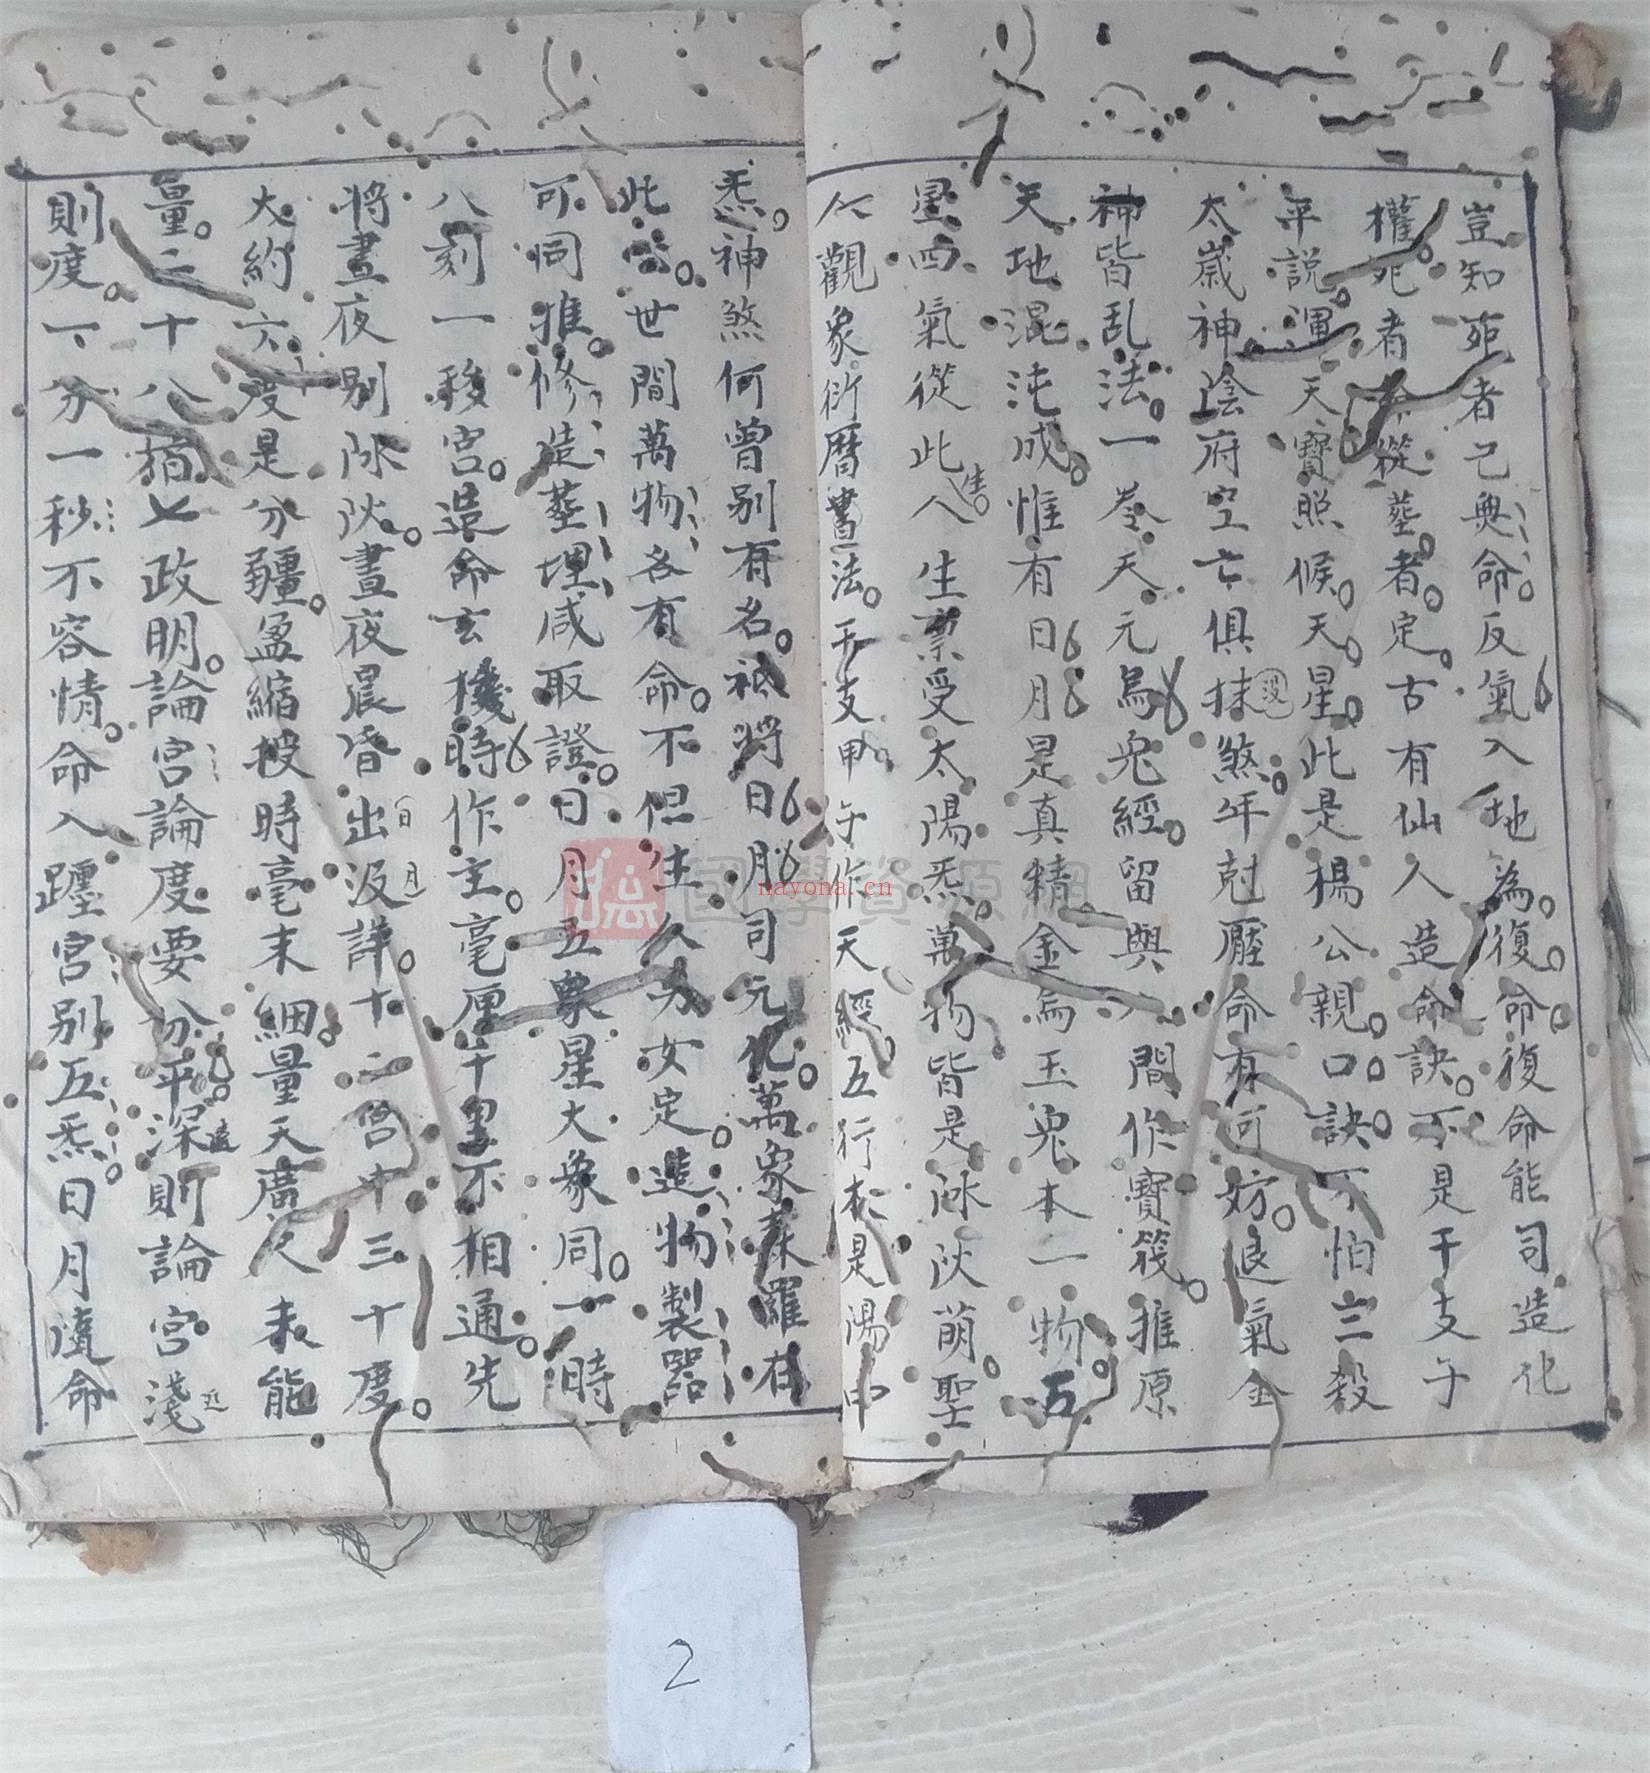 豈知死者已無命反氣入地為復命復命能司造化
權死者命從葬者定古有仙人造命訣不是干支子
平説運天寶照候天星此是楊公親口訣不怕三殺
太歲神陰府空亡俱抹煞年尅壓命有何妨退氣金
沒
神皆乱法一卷天元烏兔經留與人間作寶筏推原
天地混沌成惟有日月是真精金烏玉兔本一物五
星四氣從此生人生禀受太陽炁萬物皆是陰陽萌聖
人觀象衍曆書法干支甲子作天經五行本是陽中
炁神煞何曾别有名祗將日月司元化萬象森羅在
此世間萬物各有命不但生人男女定造物製器
可同推修造葬埋咸取證日月五象星大象同一時
八刻一移宫造命玄機時作主毫厘千里不相通先
將晝夜别陰陽晝夜晨昏出没詳十二宫中三十度
日
月
大約六度是分疆盈縮授時毫末細量天廣尺未能
量二十八宿七政明論宫論度要分平深則論宫淺
遠
近
則度一分一秒不容情命入躔宫别五炁日月隨命
國學資源網
nayona.cn
2